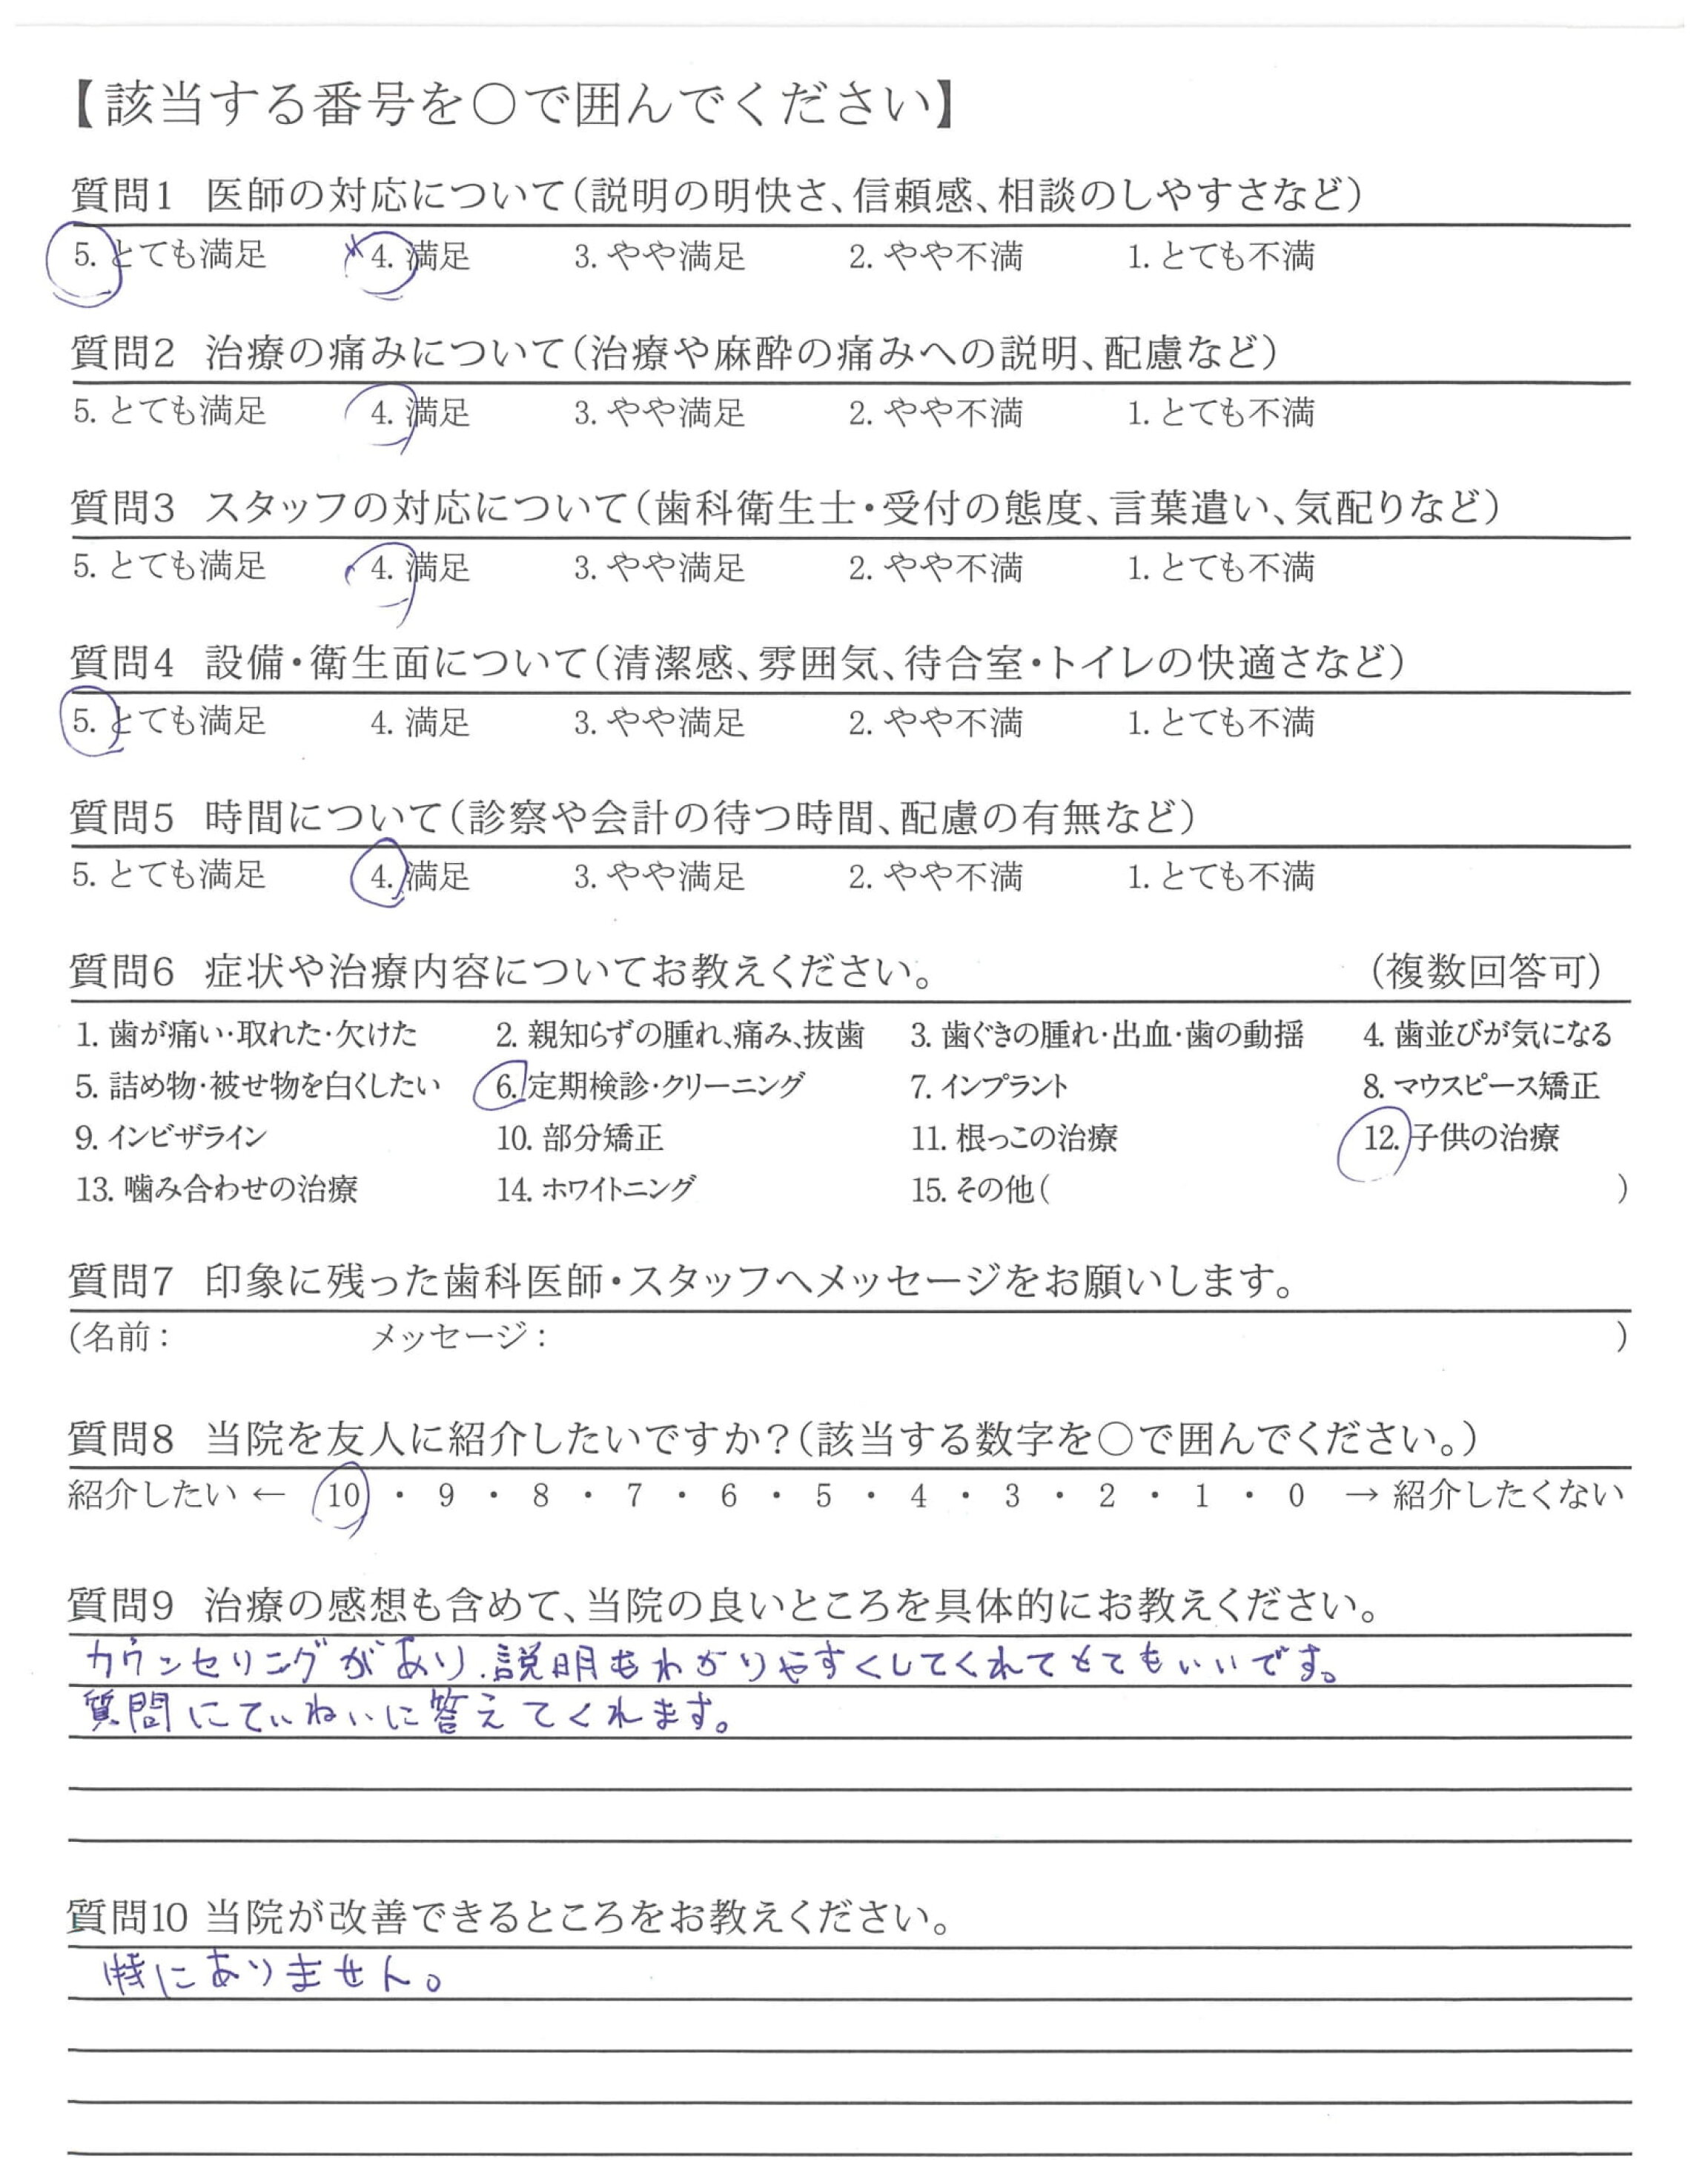 【該当する番号を○で囲んでください】
質問1 医師の対応について(説明の明快さ、信頼感、相談のしやすさなど)
5. とても満足 4. 満足 3. やや満足 2. やや不満 1. とても不満
質問2 治療の痛みについて(治療や麻酔の痛みへの説明、配慮など)
5. とても満足 4. 満足 3. やや満足 2. やや不満 1. とても不満
質問3 スタッフの対応について(歯科衛生士・受付の態度、言葉遣い、気配りなど)
5. とても満足 4. 満足 3. やや満足 2. やや不満 1. とても不満
質問4 設備・衛生面について(清潔感、雰囲気、待合室・トイレの快適さなど)
5. とても満足 4. 満足 3. やや満足 2. やや不満 1. とても不満
質問5 時間について(診察や会計の待つ時間、配慮の有無など)
5. とても満足 4. 満足 3. やや満足 2. やや不満 1. とても不満
質問6 症状や治療内容についてお教えください。 (複数回答可)
1. 歯が痛い・取れた・欠けた 2. 親知らずの腫れ、痛み、抜歯 3. 歯ぐきの腫れ・出血・歯の動揺 4. 歯並びが気になる
5. 詰め物・被せ物を白くしたい 6. 定期検診・クリーニング 7. インプラント 8. マウスピース矯正
9. インビザライン 10. 部分矯正 11. 根っこの治療 12. 子供の治療
13. 噛み合わせの治療 14. ホワイトニング 15. その他( )
質問7 印象に残った歯科医師・スタッフへメッセージをお願いします。
(名前: メッセージ: )
質問8 当院を友人に紹介したいですか?(該当する数字を○で囲んでください。)
紹介したい ← 10 ・ 9 ・ 8 ・ 7 ・ 6 ・ 5 ・ 4 ・ 3 ・ 2 ・ 1 ・ 0 → 紹介したくない
質問9 治療の感想も含めて、当院の良いところを具体的にお教えください。
カウンセリングがあり、説明もわかりやすくしてくれてとてもいいです。
質問にていねいに答えてくれます。
質問10 当院が改善できるところをお教えください。
特にありません。